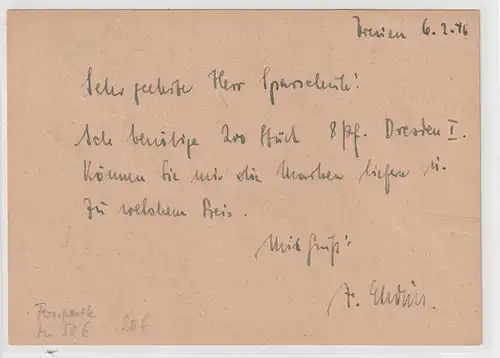 6. 2. 46
Sehr geehrter Herr Sparschuh!
Ich benötige 200 Stück 8 Pf. Dresden I.
Können Sie mir die Marken liefern u.
zu welchem Preis.
Mit Gruß!
20 €